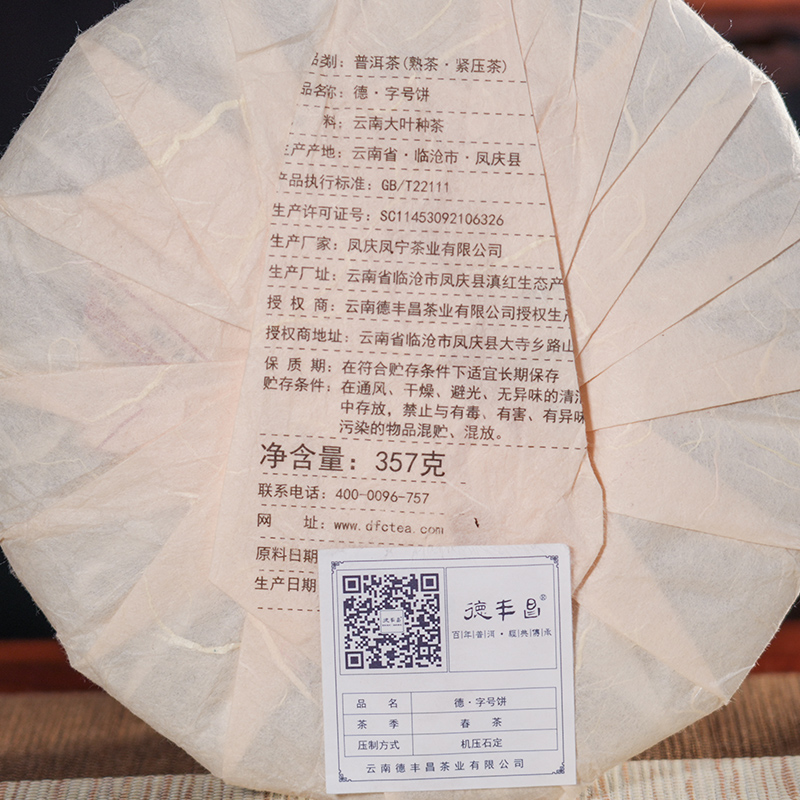 品类别：普洱茶(熟茶·紧压茶)
品名称：德·字号饼
料：云南大叶种茶
生产产地：云南省·临沧市·凤庆县
产品执行标准：GB/T22111
生产许可证号：SC11453092106326
生产厂家：凤庆凤宁茶业有限公司
生产厂址：云南省临沧市凤庆县滇红生态产
授 权 商：云南德丰昌茶业有限公司授权生产
授权商地址：云南省临沧市凤庆县大寺乡路山
保 质 期：在符合贮存条件下适宜长期保存
贮存条件：在通风、干燥、避光、无异味的清洁
中存放，禁止与有毒、有害、有异味
污染的物品混贮、混放。
净含量：357克
联系电话：400-0096-757
网 址：www.dfctea.com
原料日期
生产日期
德丰昌®
百年普洱·经典传承
德丰昌
品 名 德·字号饼
茶 季 春 茶
压制方式 机压石定
云南德丰昌茶业有限公司